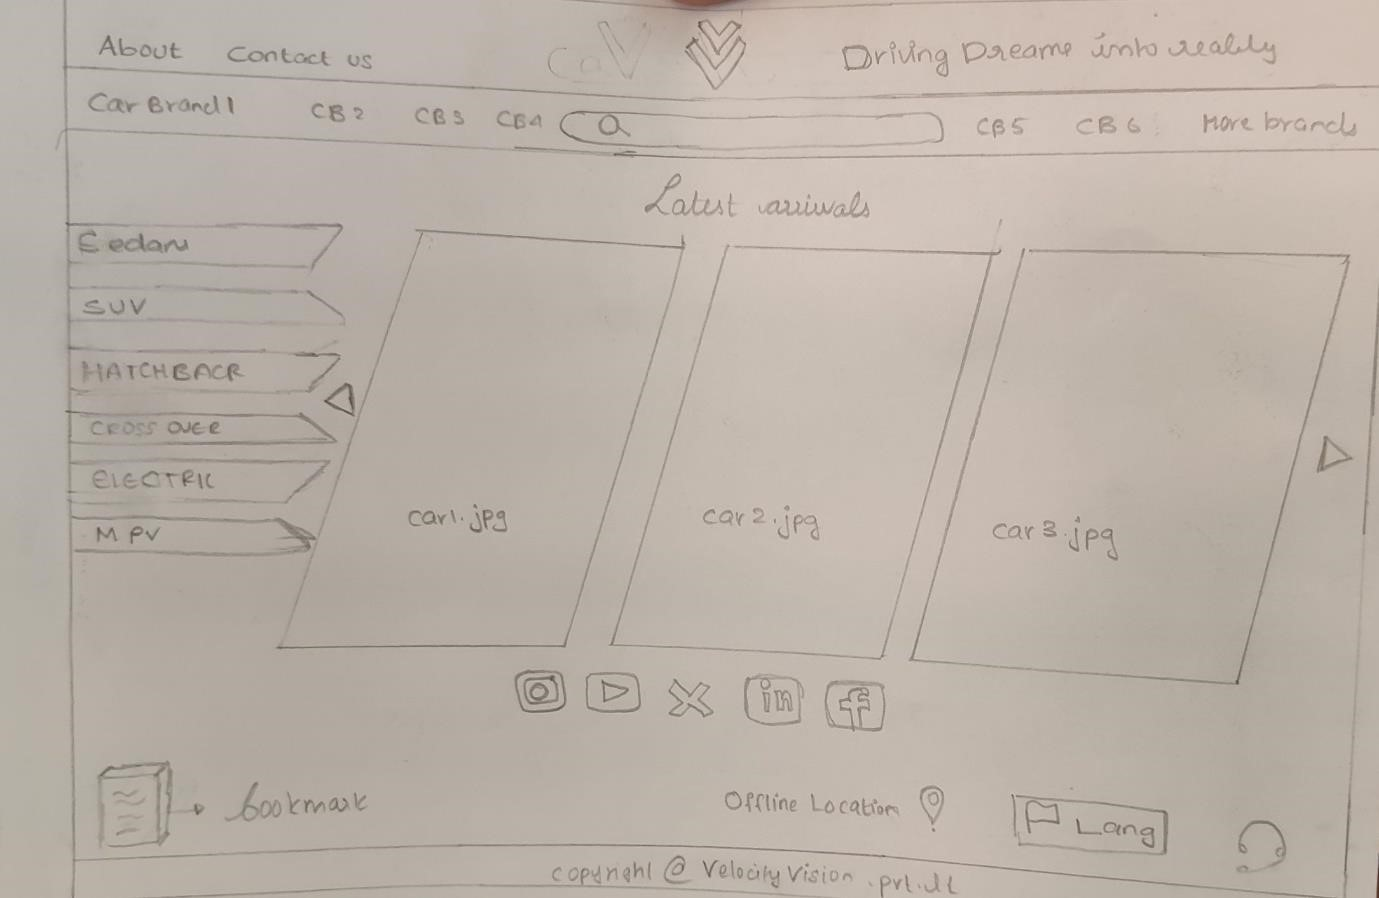 About Contact us
Driving Dreams into reality
Car Brand1 CB2 CB3 CB4 CB5 CB6 More brands
Latest arrivals
Sedan
SUV
HATCHBACK
CROSS OVER
ELECTRIC
MPV
car1.jpg car2.jpg car3.jpg
in f
bookmark
Offline Location
Lang
copyright @ Velocity Vision .pvt.lt